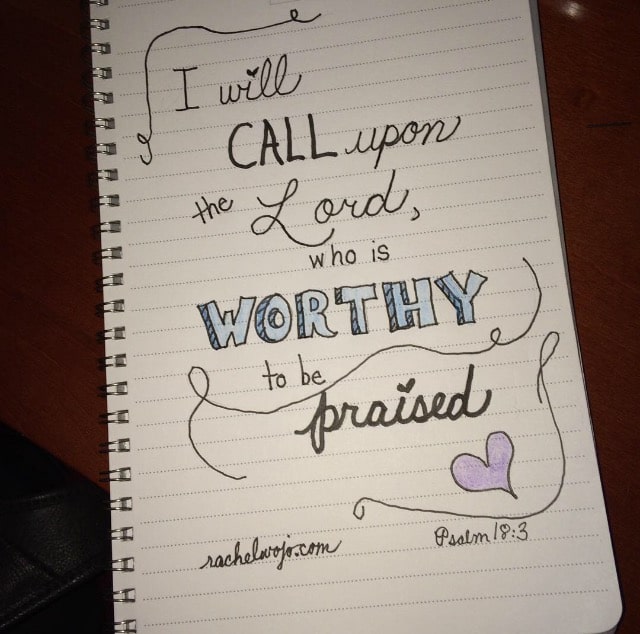 I will
CALL upon
the Lord,
who is
WORTHY
to be
praised
Psalm 18:3
rachelwojo.com